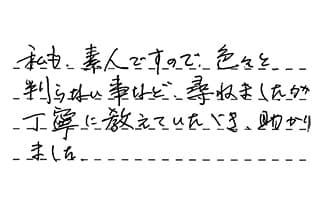 私も、素人ですので、色々と
判らない事など、尋ねましたが
丁寧に教えていただき、助かり
ました